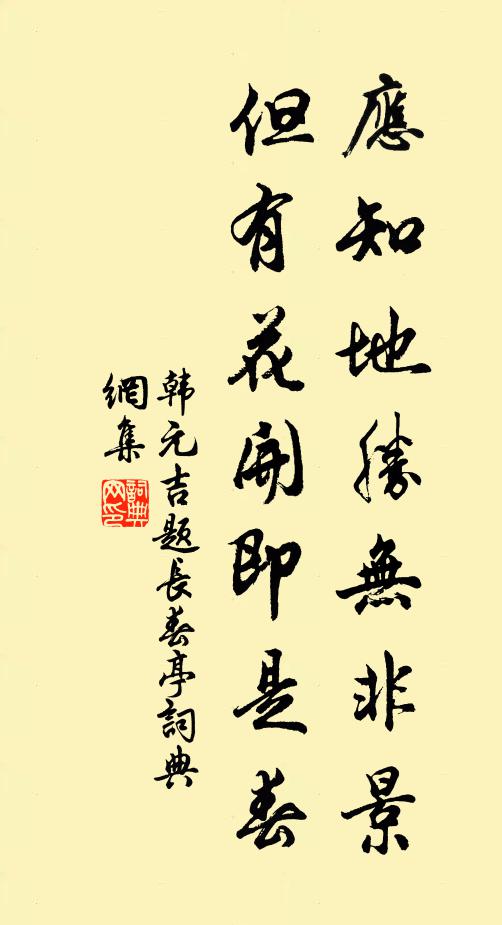 應知地勝無非景
但有花開即是春
韩元吉题長春亭詞典
網集
詞典網印